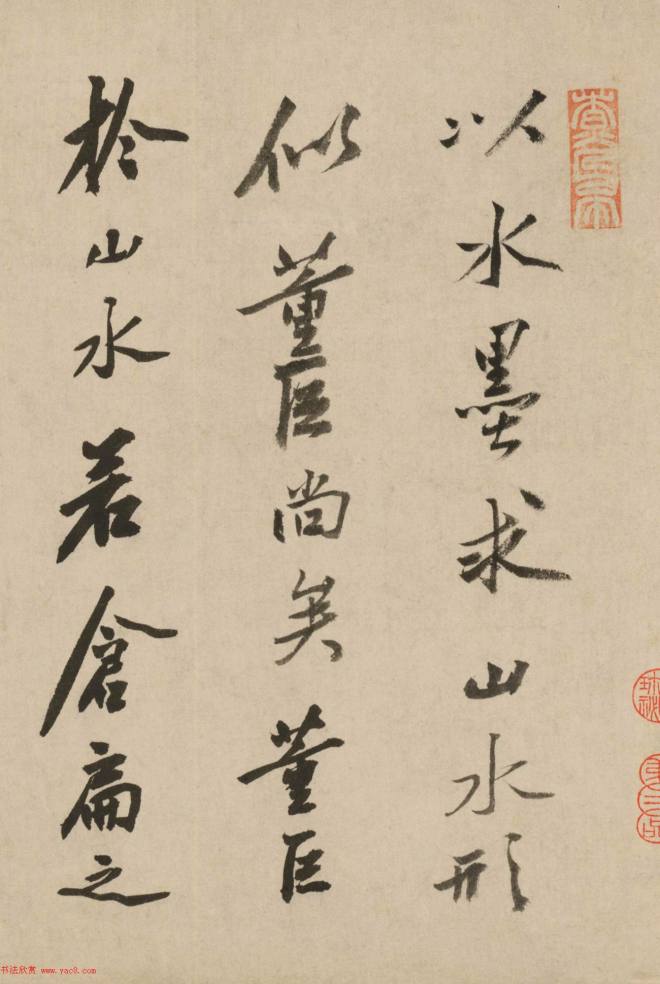 以水墨求山水形
似董巨尚矣董巨
於山水若倉扁之
书法欣赏 www.yac8.com